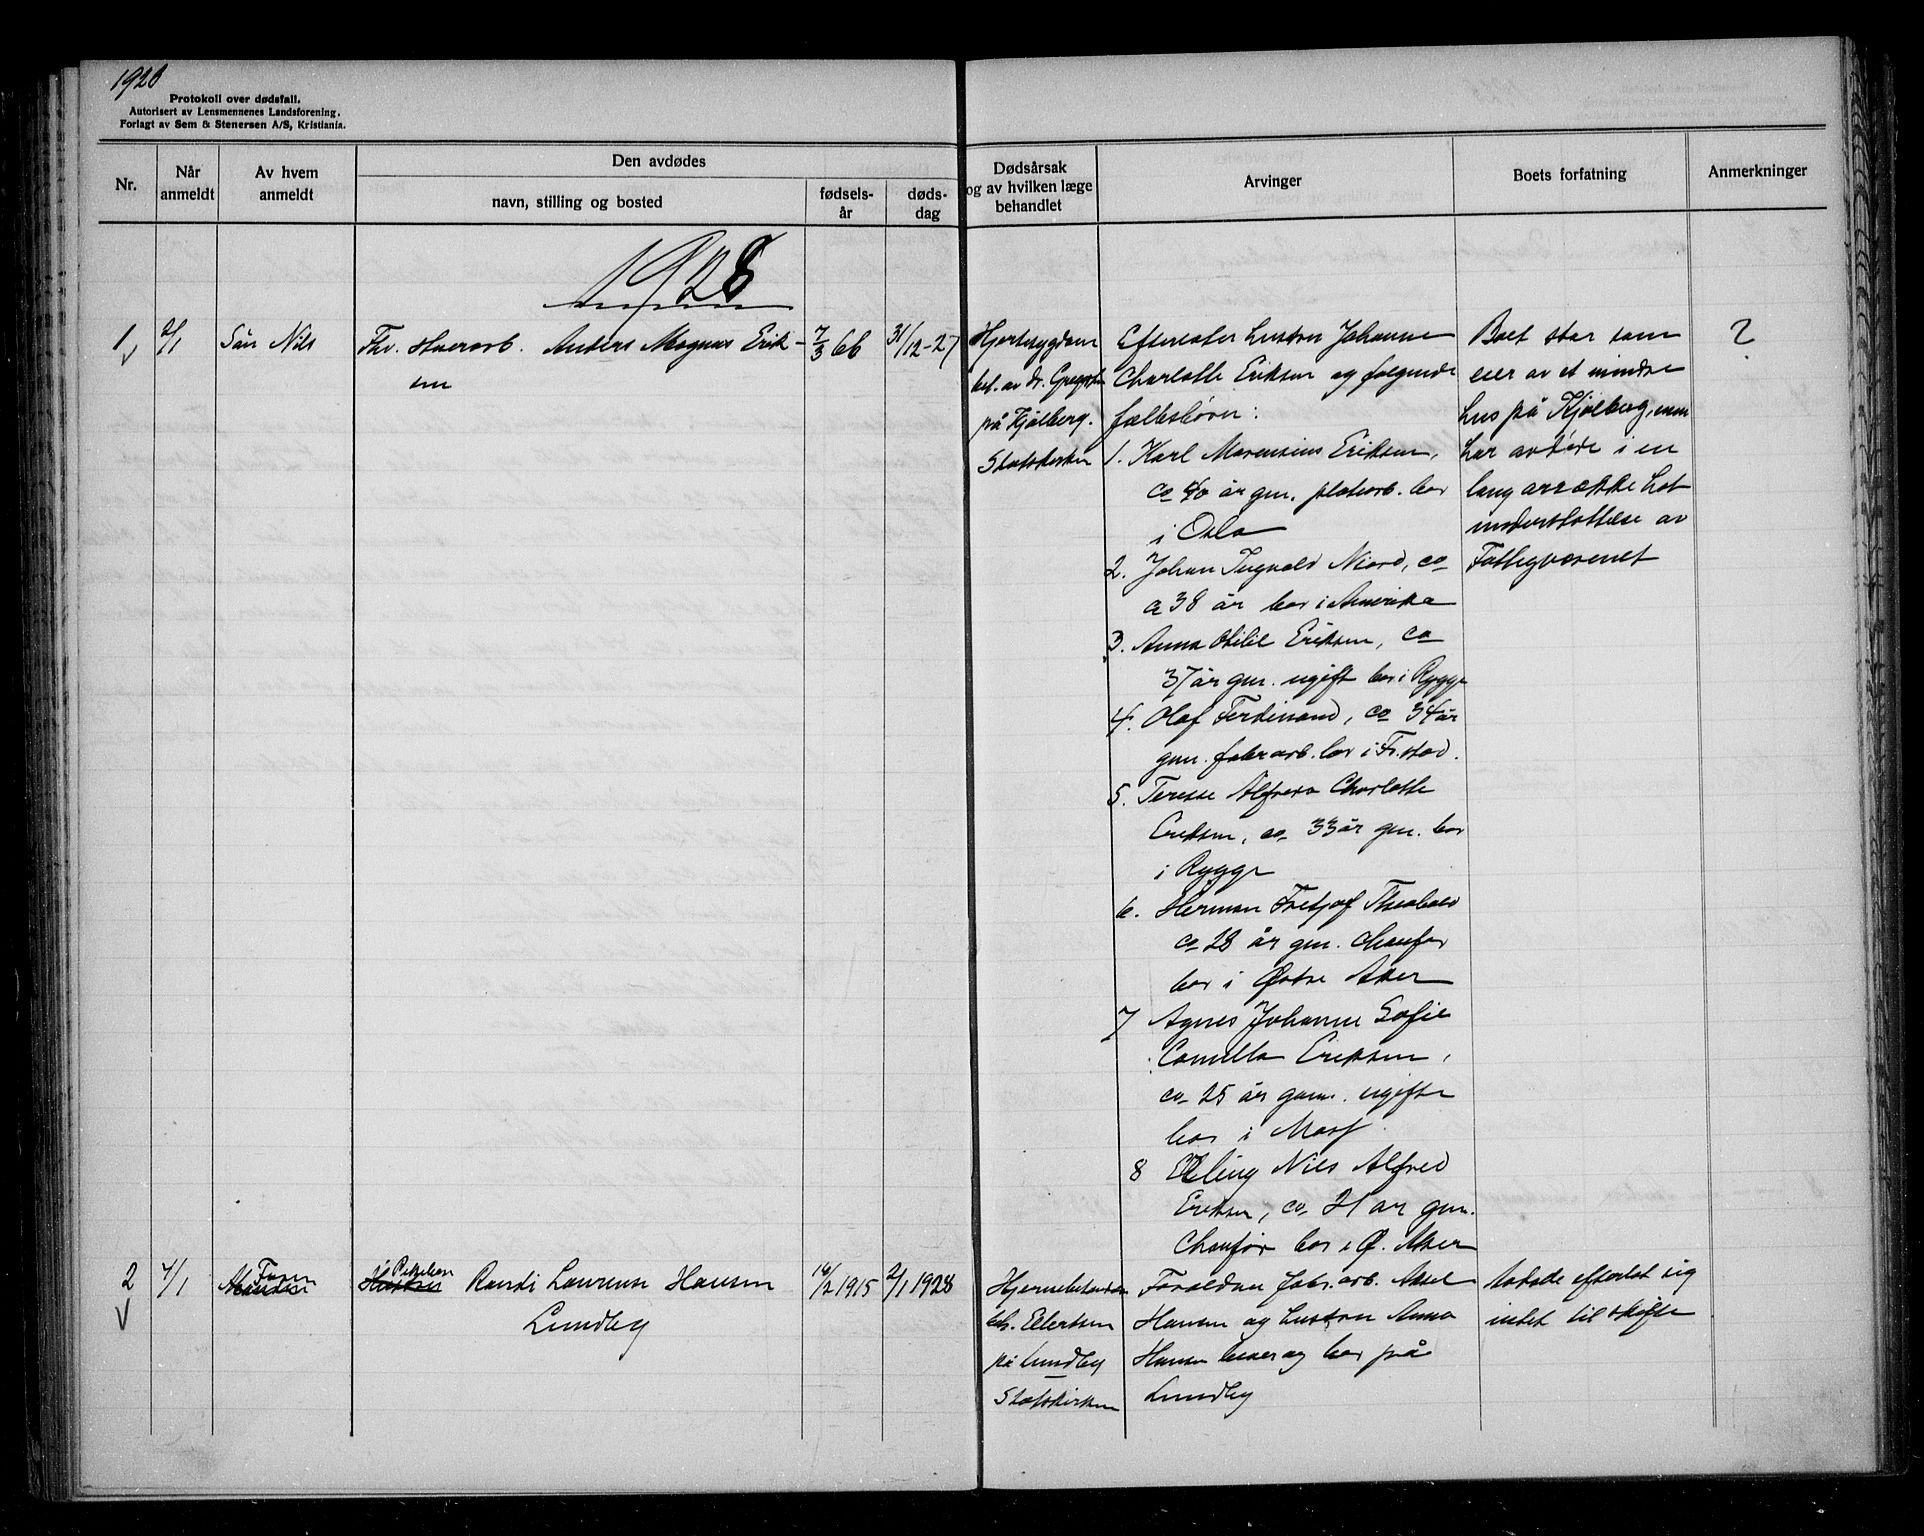 1928
Protokoll over dødsfall.
Autorisert av Lensmennenes Landsforening.
Forlagt av Sem & Stenersen A/S, Kristiania.
Nr.
Når anmeldt
Av hvem anmeldt
Den avdødes
navn, stilling og bosted
fødsels-år
døds-dag
Dødsårsak og av hvilken læge behandlet
Arvinger
Boets forfatning
Anmerkninger
1928
1
2/1
Nils
Fhv. Anders Magnus Erik-
sen
7/3 66
31/12-27
Hjertesygdom
beh. av dr.
på Kjølberg.
Statskirken
Efterlater hustru Johanne
Charlotte Eriksen og følgende
fællesbørn:
1. Karl Eriksen,
ca 40 år gm. bor
i Oslo
2. Johan Niord, ca
ca 38 år bor i Amerika
3. Anna Eriksen, ca
37 år gm. ugift bor i Rygge
4. Olaf Ferdinand, ca 34 år
gm. bor i Fr.stad.
5. Terese Alfreda Charlotte
Eriksen, ca 33 år gm. bor
i Rygge
6. Herman Fretjof
ca 28 år gm. chaufør
bor i Østre Aker
7 Agnes Johanne Sofie
Camilla Eriksen,
ca 25 år gam. ugifte
bor i
8 Erling Nils Alfred
Eriksen, ca 21 år gm.
Chaufør bor i Ø. Aker
Boet står som
eier av et mindre
hus på Kjølberg, men
har avdøde i en
lang årrække hat
understøttelse av
Fattigvæsenet
?
2
4/1
Faren
Pikebarn Randi Laurense Hansen
Lundby
16/2 1915
2/1 1928
beh. Ellertsen
på Lundby
Statskirken
Forældre fabr. arb. Aksel
Hansen og hustru Anna
Hansen lever og bor på
Lundby
Avdøde efterlot sig
intet til skifte